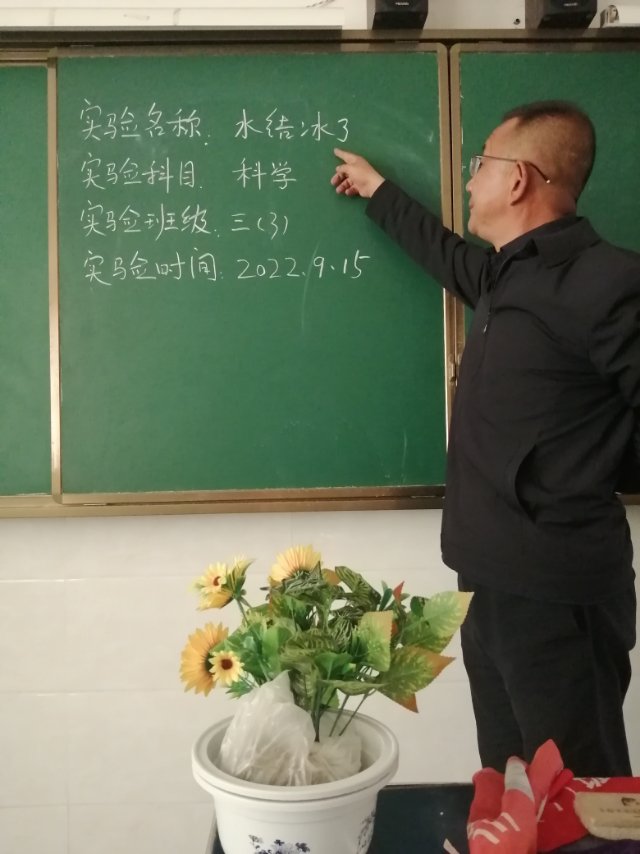 实验名称: 水结冰了
实验科目: 科学
实验班级: 三(3)
实验时间: 2022.9.15